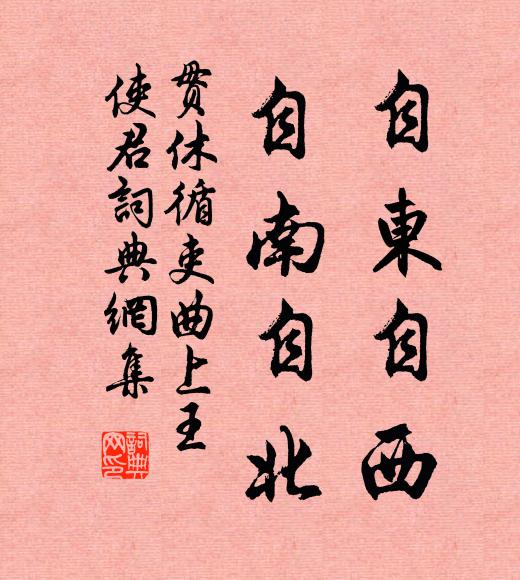 自東自西
自南自北
貫休循吏曲上王
使君詞典網集
詞典網印